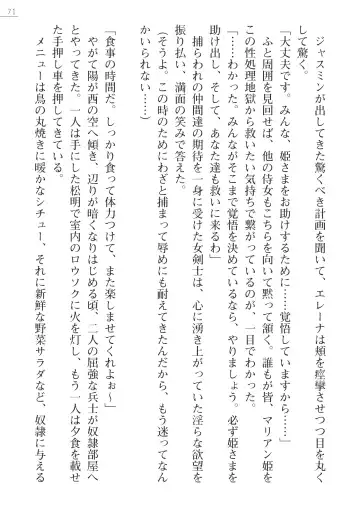 71
ジャスミンが出してきた驚くべき計画を聞いて、エレーナは頬を痙攣させつつ目を丸く
して驚く。
「大丈夫です。みんな、姫さまをお助けするために……覚悟していますから……」
ふと周囲を見回せば、他の侍女もこちらを向いて黙って頷く。誰もが皆、マリアン姫を
この性処理地獄から救いたい気持ちで繋がっているのが、一目でわかった。
「……わかった。みんながそこまで覚悟を決めているなら、やりましょう。必ず姫さまを
助け出し、そして、あなた達も救いに来るわ」
捕らわれの仲間達の期待を一身に受けた女剣士は、心に湧き上がっていた淫らな欲望を
振り払い、満面の笑みで答えた。
（そうよ。この時のためにわざと捕まって辱めにも耐えてきたんだから、もう迷ってなん
かいられない……）
「食事の時間だ。しっかり食って体力つけて、また楽しませてくれよぉ～」
やがて陽が西の空へ傾き、辺りが暗くなりはじめる頃、二人の屈強な兵士が奴隷部屋へ
とやってきた。一人は手にした松明で室内のロウソクに火を灯し、もう一人は夕食を載せ
た手押し車を押してきている。
メニューは鳥の丸焼きに暖かなシチュー、それに新鮮な野菜サラダなど、奴隷に与える